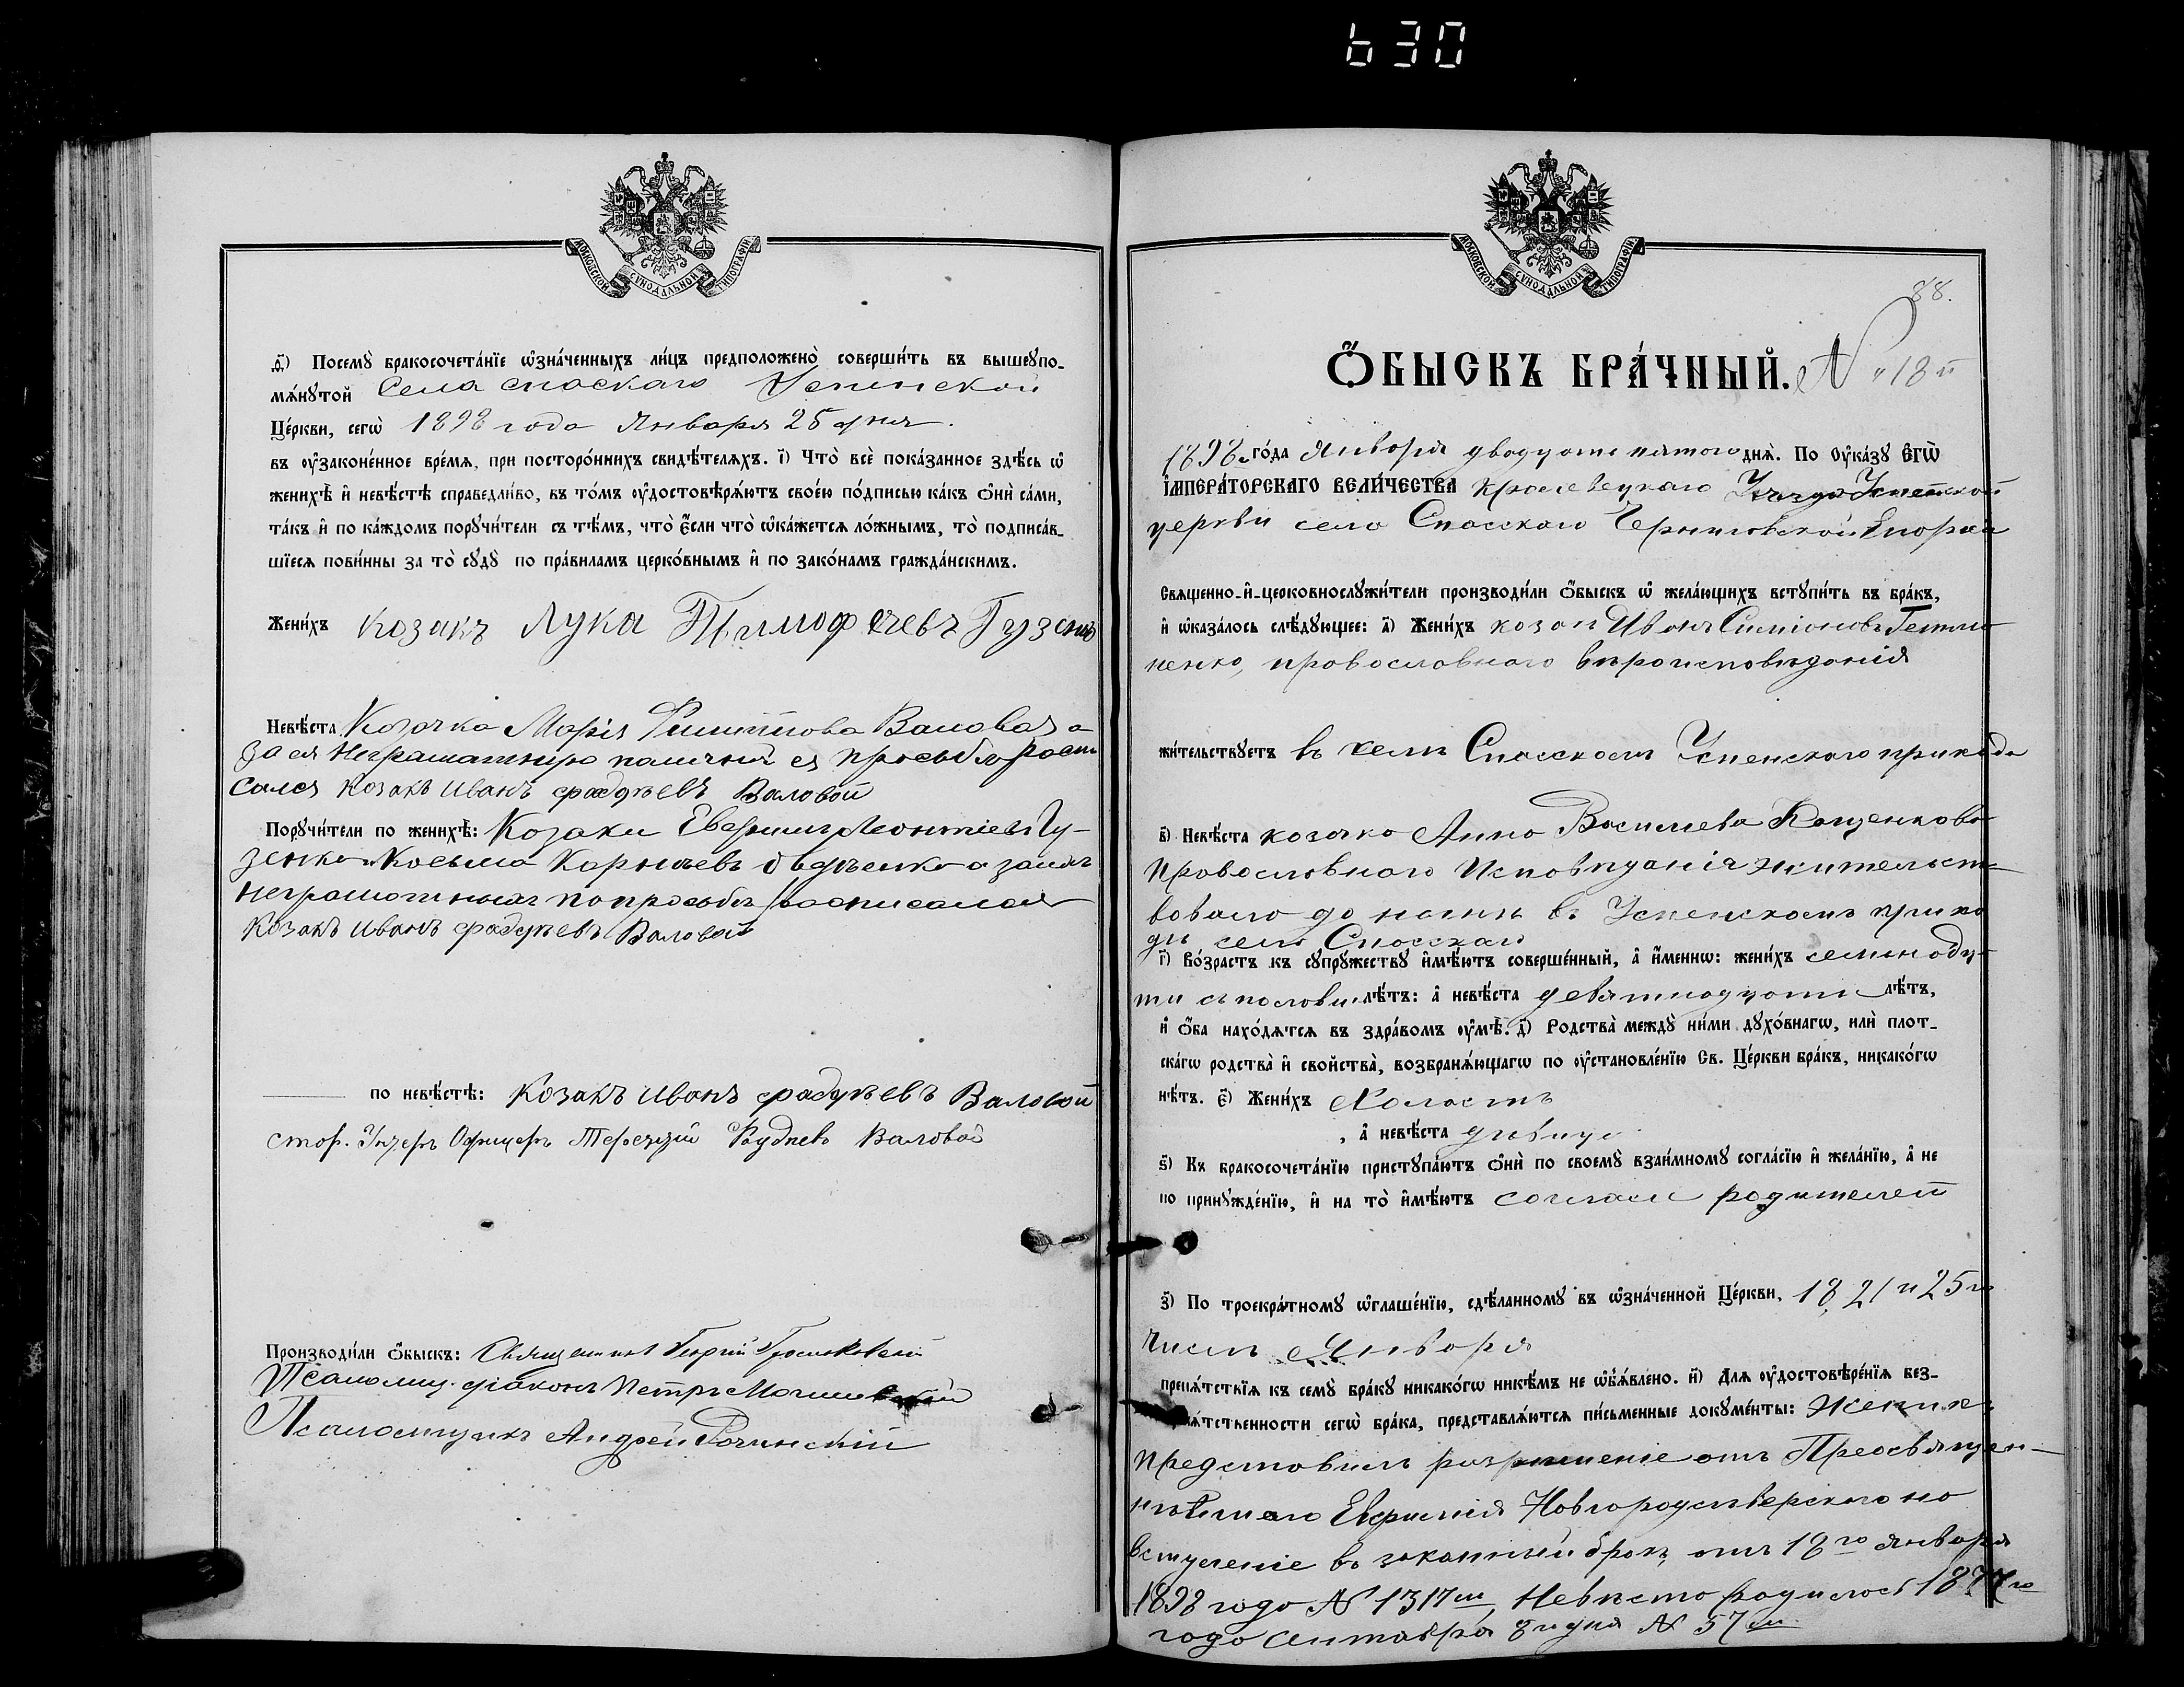 630
МОСКОВСКОЙ СѴНОДАЛЬНОЙ ТИПОГРАФІИ
д҃і) Посемꙋ̀ бракосочета́нїе ѡ҆зна́ченныхъ ли́цъ предположено̀ соверши́ть въ вышеꙋпо-
мѧ́нꙋтой Села Спаскаго Успенской
Це́ркви, сегѡ̀ 1898 года Января 25 дня.
въ ᲂу҆законе́нное вре́мѧ, при посторо́ннихъ свидѣ́телѧхъ. і҃) Что̀ всѐ пока́занное здѣ́сь ѡ҆
женихѣ̀ и҆ невѣ́стѣ справедли́во, въ то́мъ ᲂу҆достовѣрѧ́ютъ свое́ю по́дписью ка́къ ѻ҆нѝ са́ми,
та́къ и҆ по ка́ждомъ порꙋчи́тели съ тѣ́мъ, что̀ є҆́сли что̀ ѡ҆ка́жетсѧ ло́жнымъ, то̀ подписа́в-
шїесѧ пови́нны за то̀ сꙋдꙋ̀ по пра́виламъ церко́внымъ и҆ по зако́намъ гражда́нскимъ.
Жени́хъ козакъ Лука Тимофеевъ Гузенко
Невѣ́ста Козачка Марія Филиппова Валовая а
за ея неграматную по личной ея просьбѣ роспи
сался козакъ Иванъ Фадѣевъ Валовой
Порꙋчи́тели по женихѣ̀: Козаки Евфимъ Леонтіевъ Гу-
зенко и Косьма Карнѣевъ а за нихъ
неграмотныхъ по просьбѣ росписался
козакъ Иванъ Фадѣевъ Валовой
по невѣ́стѣ: Козакъ Иванъ Фадѣевъ Валовой
стар. Унтеръ Офицеръ Терентій Валовой
Производи́ли ѻ҆́быскъ: Священникъ
Псаломщ. діаконъ Петръ
Псаломщикъ Андрей
МОСКОВСКОЙ СѴНОДАЛЬНОЙ ТИПОГРАФІИ
88.
Ѻ҆́БЫСКЪ БРА́ЧНЫЙ. № "18й
1898 го́да Января двадцать пятаго днѧ̀. По Оу҆ка́зꙋ Є҆гѡ̀
І҆мпера́торскаго Вели́чества Кролевецкаго Уѣзда Успенской
церкви села Спасскаго Черниговской Епархіи
Свѧщенно-и҆-церковнослꙋжи́тели производи́ли ѻ҆́быскъ ѡ҆ жела́ющихъ встꙋпи́ть въ бра́къ,
и҆ ѡ҆каза́лось слѣ́дꙋющее: а҃) Жени́хъ козак Иванъ Симіоновъ
ненко, православнаго вѣроисповѣданія
жи́тельствꙋетъ въ селѣ Спасскомъ Успенскаго прихода
в҃) Невѣ́ста козачка Анна Васильева
православнаго Исповѣданія жительст-
вовала до нынѣ въ Успенскомъ прихо
дѣ села Спасскаго
г҃) Во́зрастъ къ сꙋпрꙋ́жествꙋ и҆мѣ́ютъ соверше́нный, а҆ и҆́менно: жени́хъ семнадца
ти съ половин. лѣ́тъ: а҆ невѣ́ста девятнадцати лѣ́тъ,
и҆ ѻ҆́ба нахо́дѧтсѧ въ здра́вомъ ᲂу҆мѣ̀. д҃) Родства̀ междꙋ̀ ни́ми дꙋхо́внагѡ, илѝ плот-
ска́гѡ родства̀ и҆ свойства̀, возбранѧ́ющагѡ по ᲂу҆становле́нїю Св. Це́ркви бра́къ, никако́гѡ
нѣ́тъ. є҃) Жени́хъ Холостъ
, а҆ невѣ́ста дѣвица
ѕ҃) Къ бракосочета́нїю пристꙋпа́ютъ ѻ҆нѝ по своемꙋ̀ взаи́мномꙋ согла́сїю и҆ жела́нїю, а҆ не
по принꙋжде́нїю, и҆ на то̀ и҆мѣ́ютъ согласіе родителей
з҃) По троекра́тномꙋ ѡ҆глаше́нїю, сдѣ́ланномꙋ въ ѡ҆зна́ченной Це́ркви, 18, 21 и 25го
числъ Января
препѧ́тствїѧ къ семꙋ̀ бра́кꙋ никако́гѡ никѣ́мъ не ѡ҆б̾ѧ́влено. и҃) Длѧ ᲂу҆достовѣре́нїѧ без-
пѧ́тственности сегѡ̀ бра́ка, представлѧ́ютсѧ пи́сьменные докꙋме́нты: Женихъ
представилъ разрѣшеніе отъ Преосвящен-
нѣйшаго Евфимія Новгородсѣверскаго на
вступленіе въ законный бракъ отъ 18го января
1898 года № 1317м, Невѣста родилась 1877го
года сентября 8го дня № 57м.